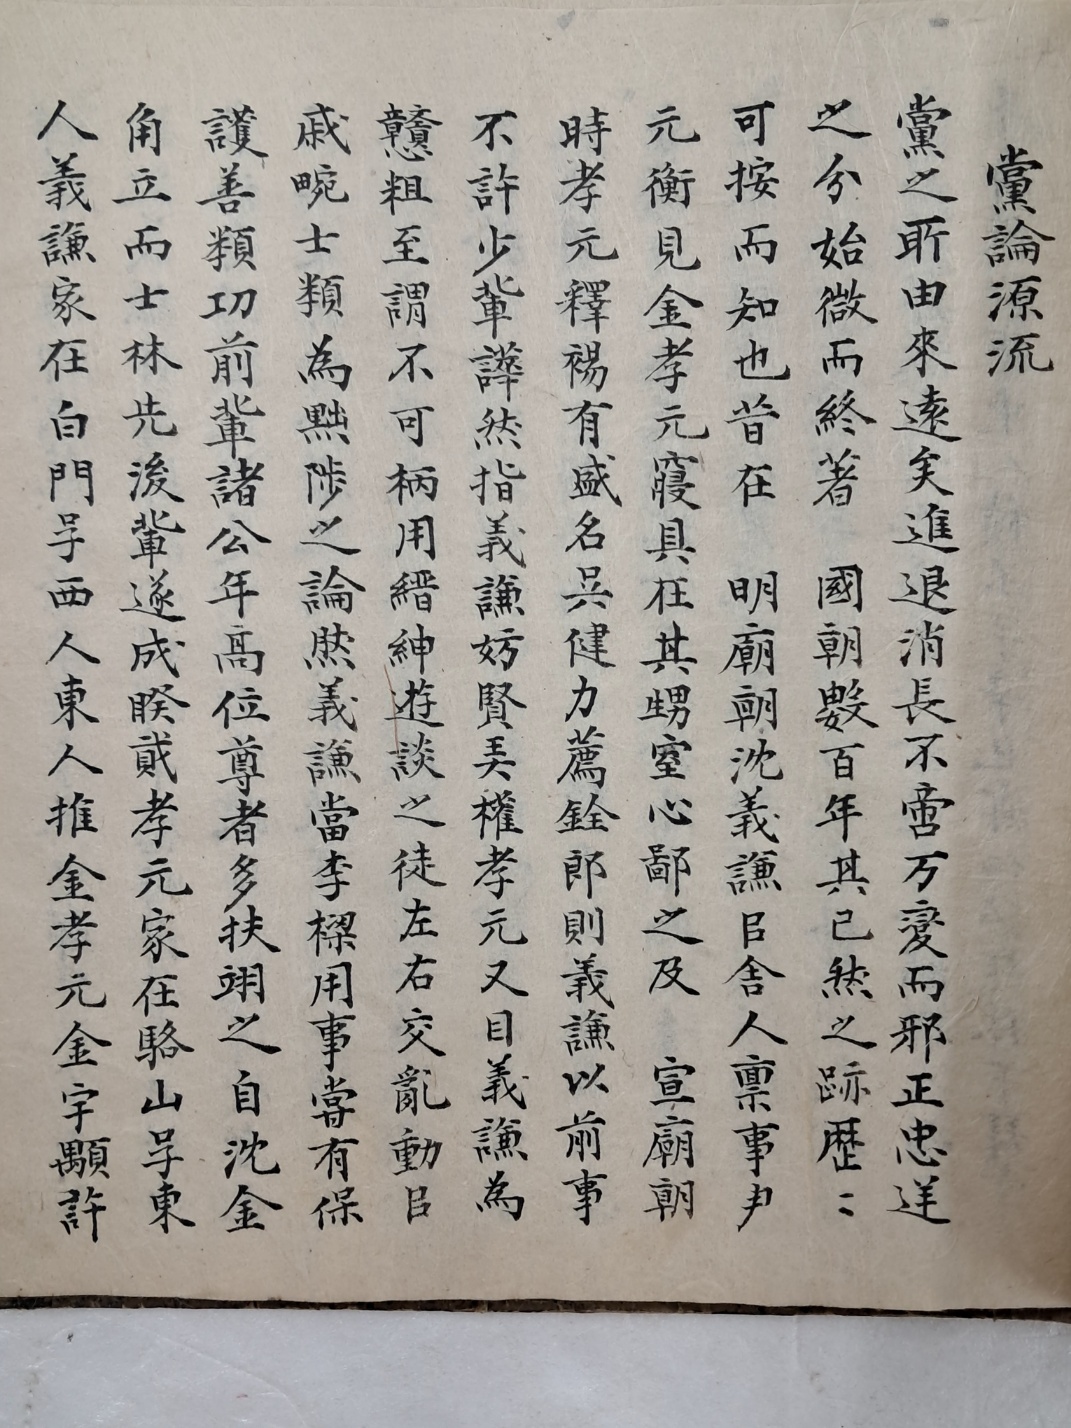 黨論源流
黨之所由來遠矣進退消長不啻万變而邪正忠逆
之分始微而終著 國朝數百年其已然之跡歷〻
可按而知也昔在 明廟朝沈義謙㠯舍人稟事尹
元衡見金孝元寢具在其甥室心鄙之及 宣廟朝
時孝元釋褐有盛名吳健力薦銓郎則義謙以前事
不許少輩譁然指義謙妨賢弄權孝元又目義謙為
戇粗至謂不可柄用縉紳遊談之徒左右交亂動㠯
戚畹士類為黜陟之論然義謙當李樑用事嘗有保
護善類功前輩諸公年高位尊者多扶翊之自沈金
角立而士林先後輩遂成睽貳孝元家在駱山号東
人義謙家在白門号西人東人推金孝元金宇顒許